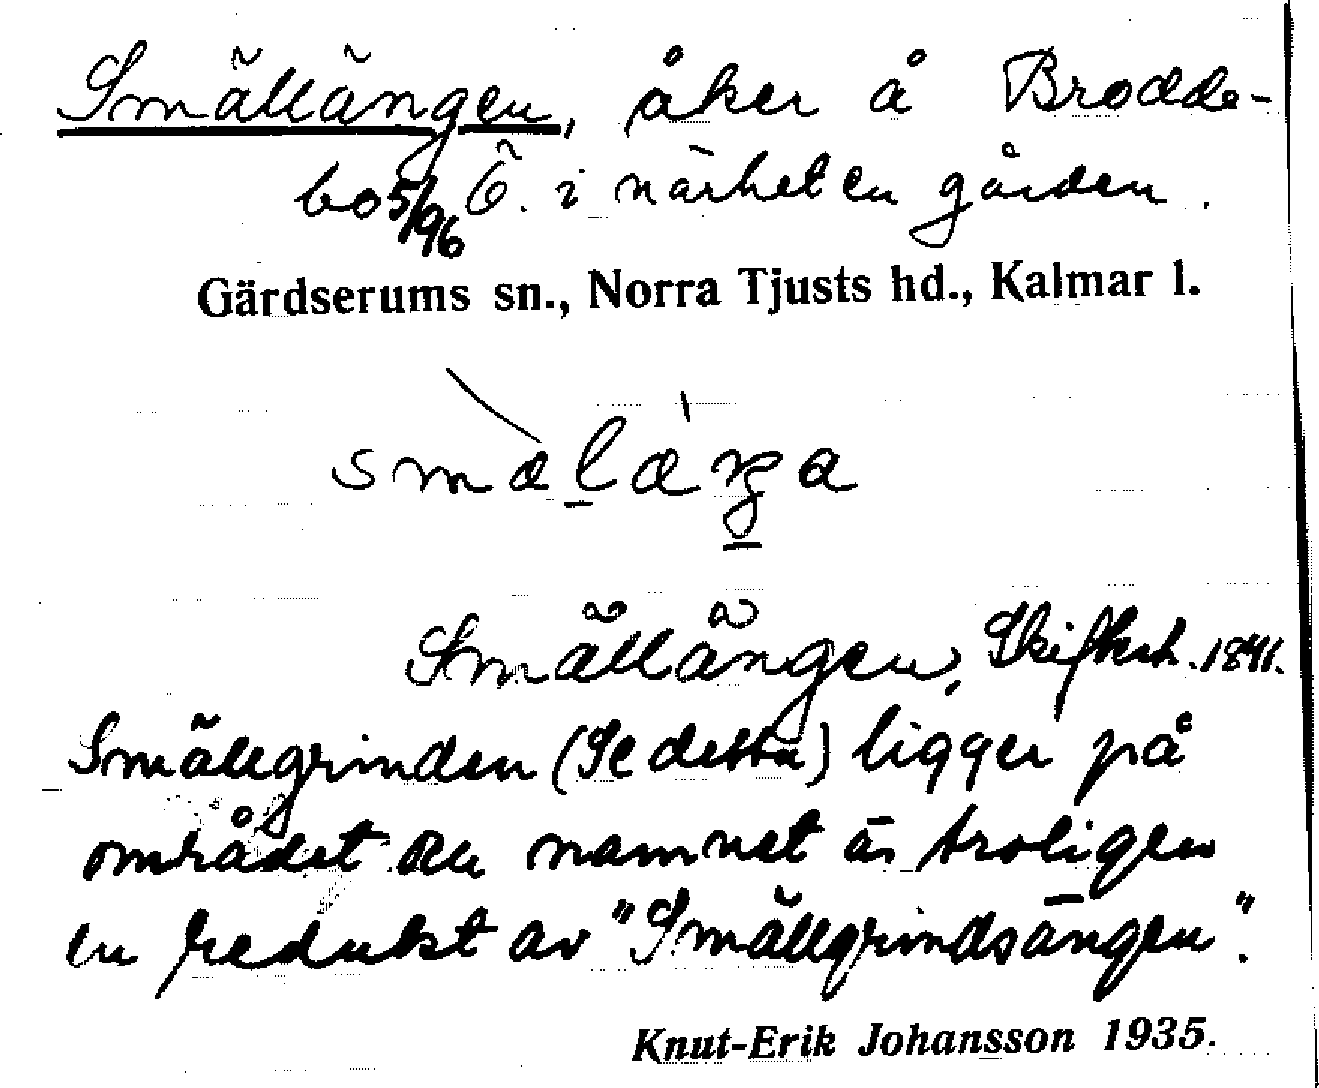 Smällängen, åker å Brodde-
bo 5/96 Ö. i närheten gården.
Gärdserums sn., Norra Tjusts hd., Kalmar l.
smælæŋa
Smällängen, Skifteh. 1841.
Smällgrinden (Se detta) ligger på
området och namnet är troligen
en redukt av "Smällgrindsängen".
Knut-Erik Johansson 1935.